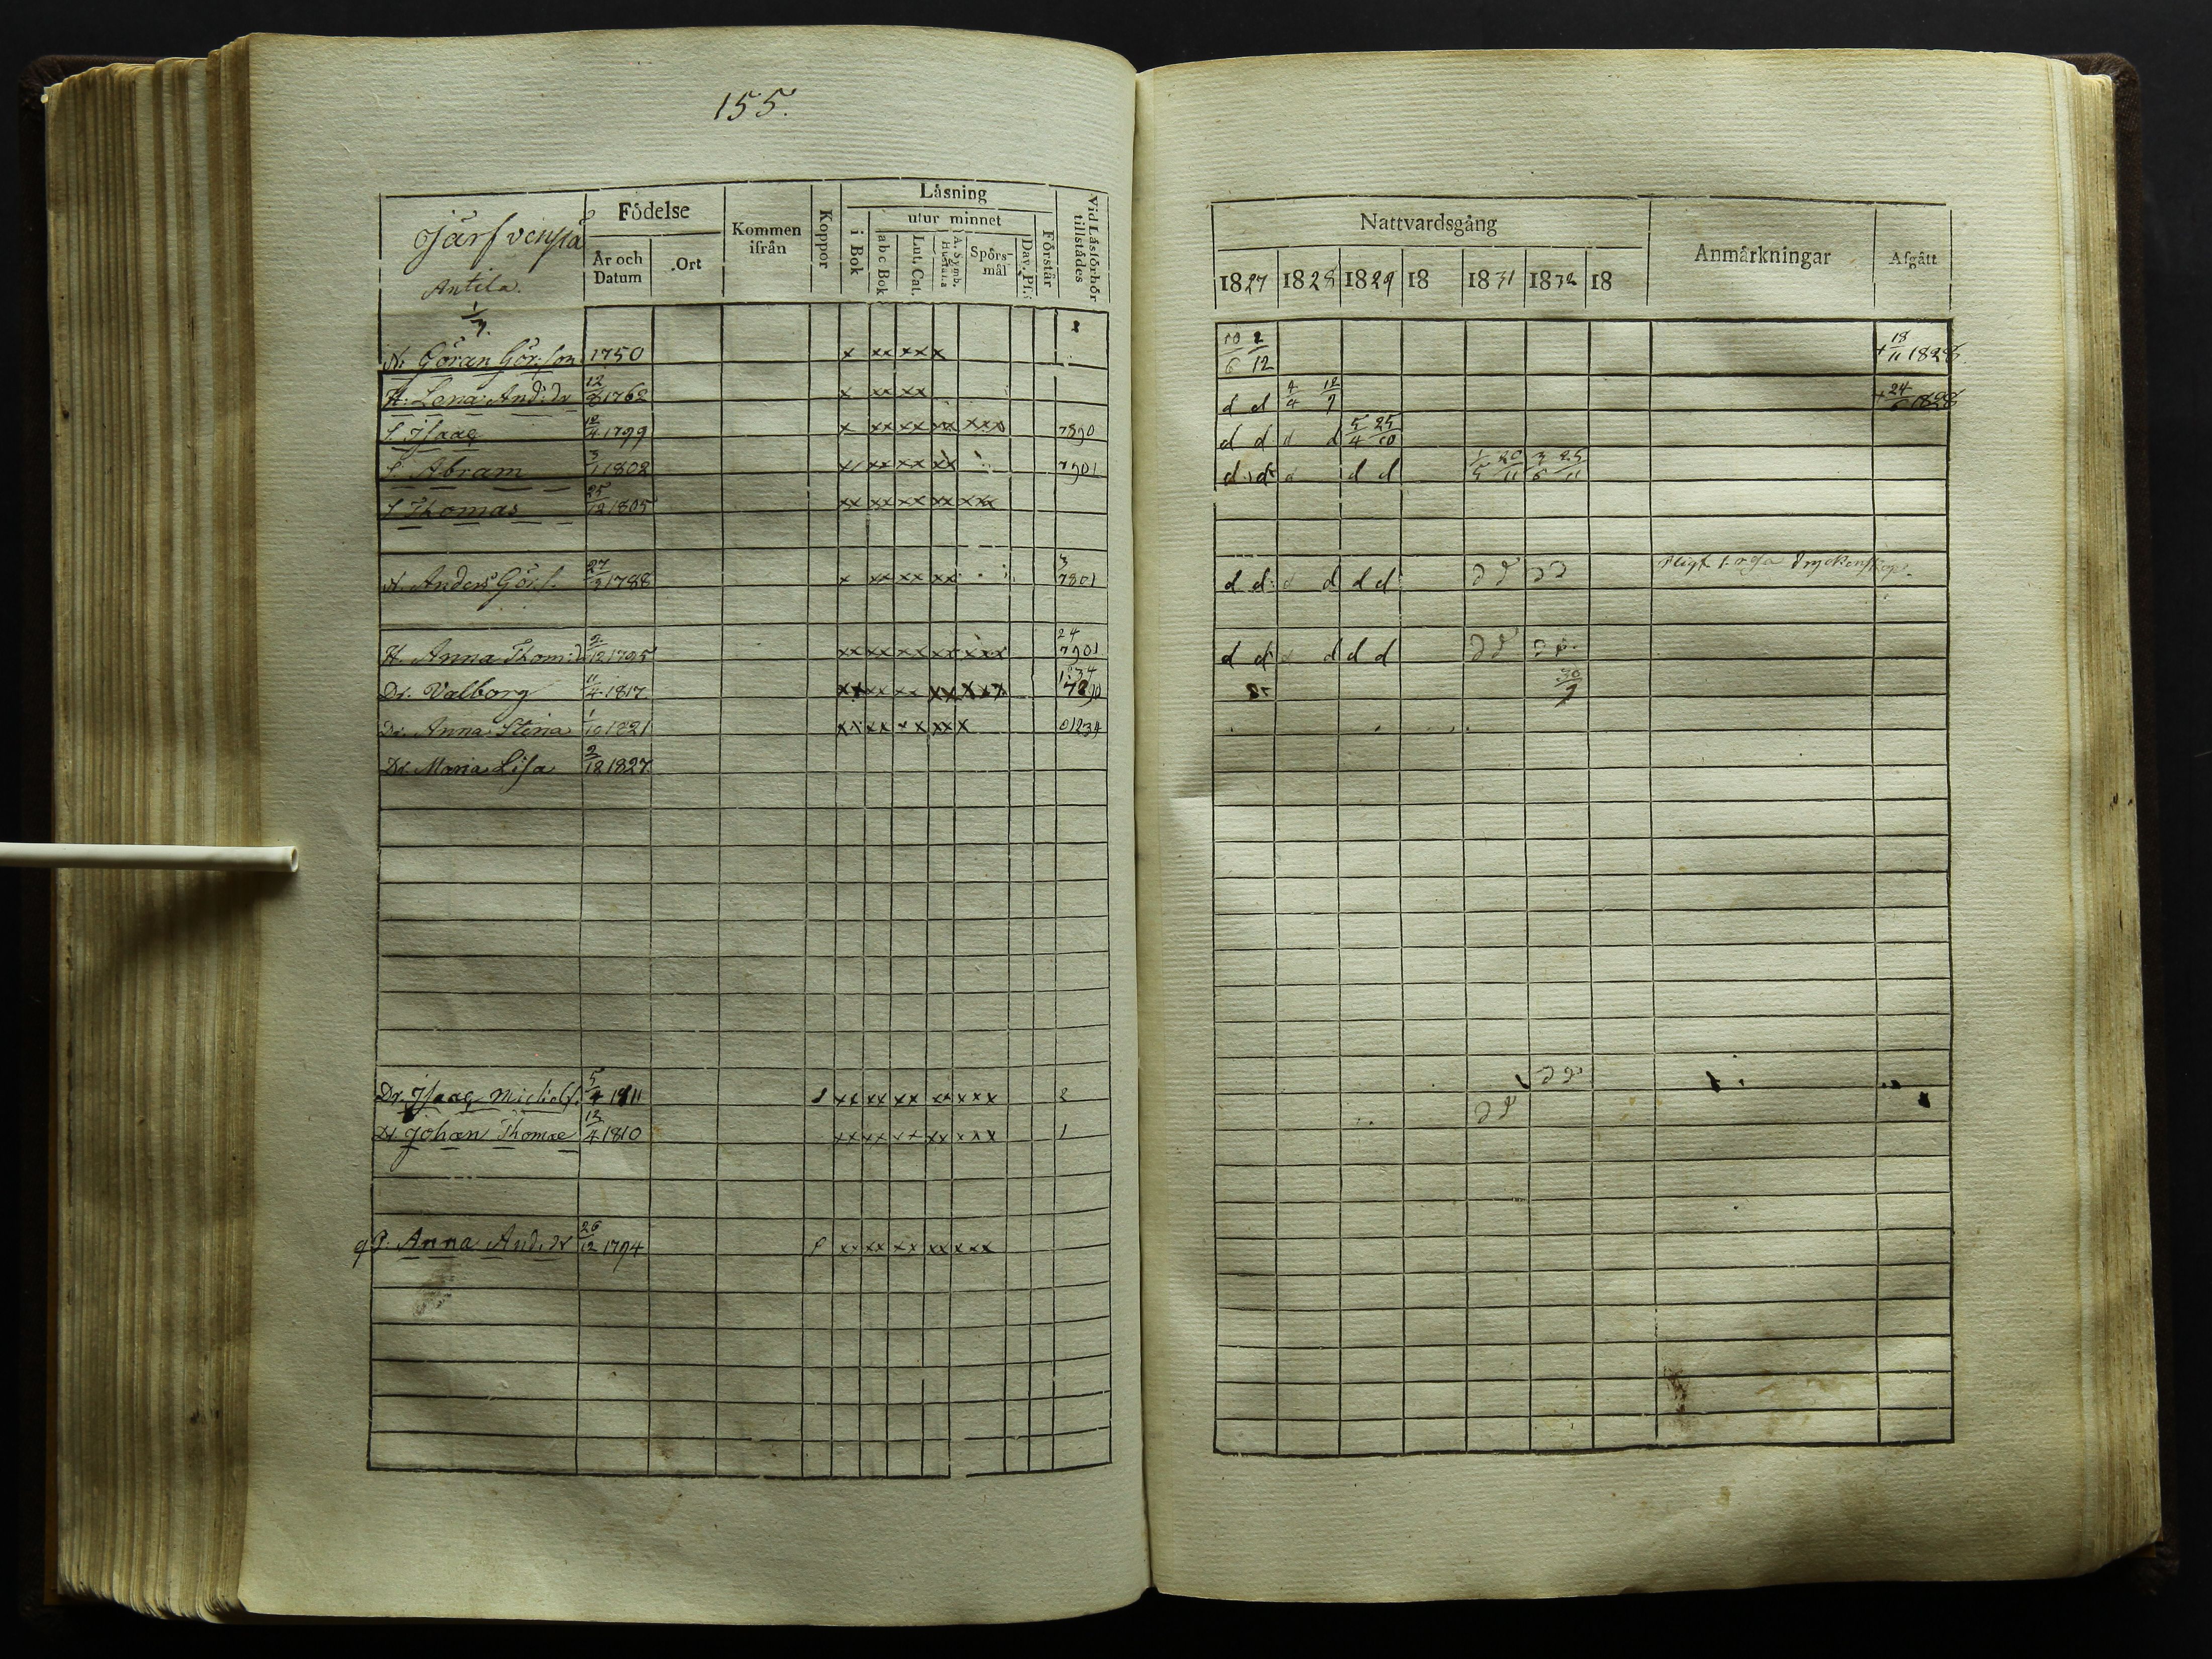 155.
Järfvenpää
Antila.
1/3.
Födelse
År och Datum
Ort
Kommen ifrån
Koppor
Läsning
i Bok
utur minnet
abc Bok
Lut. Cat.
A. Symb. Hustafla
Spörsmål
Dav. Ps.
Förstår
Vid Läsförhör tillstädes
Nattvardsgång
1827 1828 1829 18 1831 1832 18
Anmärkningar
Afgått
N. Göran Görs:son 1750 x xx xx x 10/6 2/12 + 18/11 1828
H: Lena And:dr 12/8 1762 x xx xx d d 4/4 12/7 + 24/6 1828
S. Isaac 12/4 1799 x xx xx xx xxx 7890 d d d d 5/4 25/10
S. Abram 3/1 1802 xx xx xx 7901 d d d d d 1/5 20/11 3/6 25/11
S Thomas 25/12 1805 xx xx xx xx xxx
N. Anders Görs. 27/2 1788 x xx xx xx 7801 d d d d d d
H. Anna Thom:d 2/12 1795 xx xx xx xx xxx 24 7901 d d d d d
Dr. Valborg 11/4 1817 xx xx xx xx xxx 30/7
Dr. Anna Stina 1/10 1821 xx xx xx xx x 01234
Dr. Maria Lisa 2/12 1827
Dr. Isaac Michels. 5/4 1811 xx xx xx xx xxx 2
Dr. Johan Thomae 12/4 1810 xx xx xx xx xxx 1
P: Anna And:dr 26/12 1794 xx xx xx xx xxx